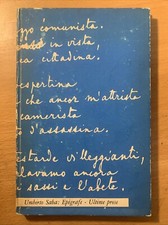 zzo comunista.
in vista,
ca cittadina.
espertina
che ancor m'attrista
camerista
d'assassina.
estarde villeggianti,
lavamo ancora
i sassi e l'abete.
Umberto Saba: Epigrafe - Ultime prose